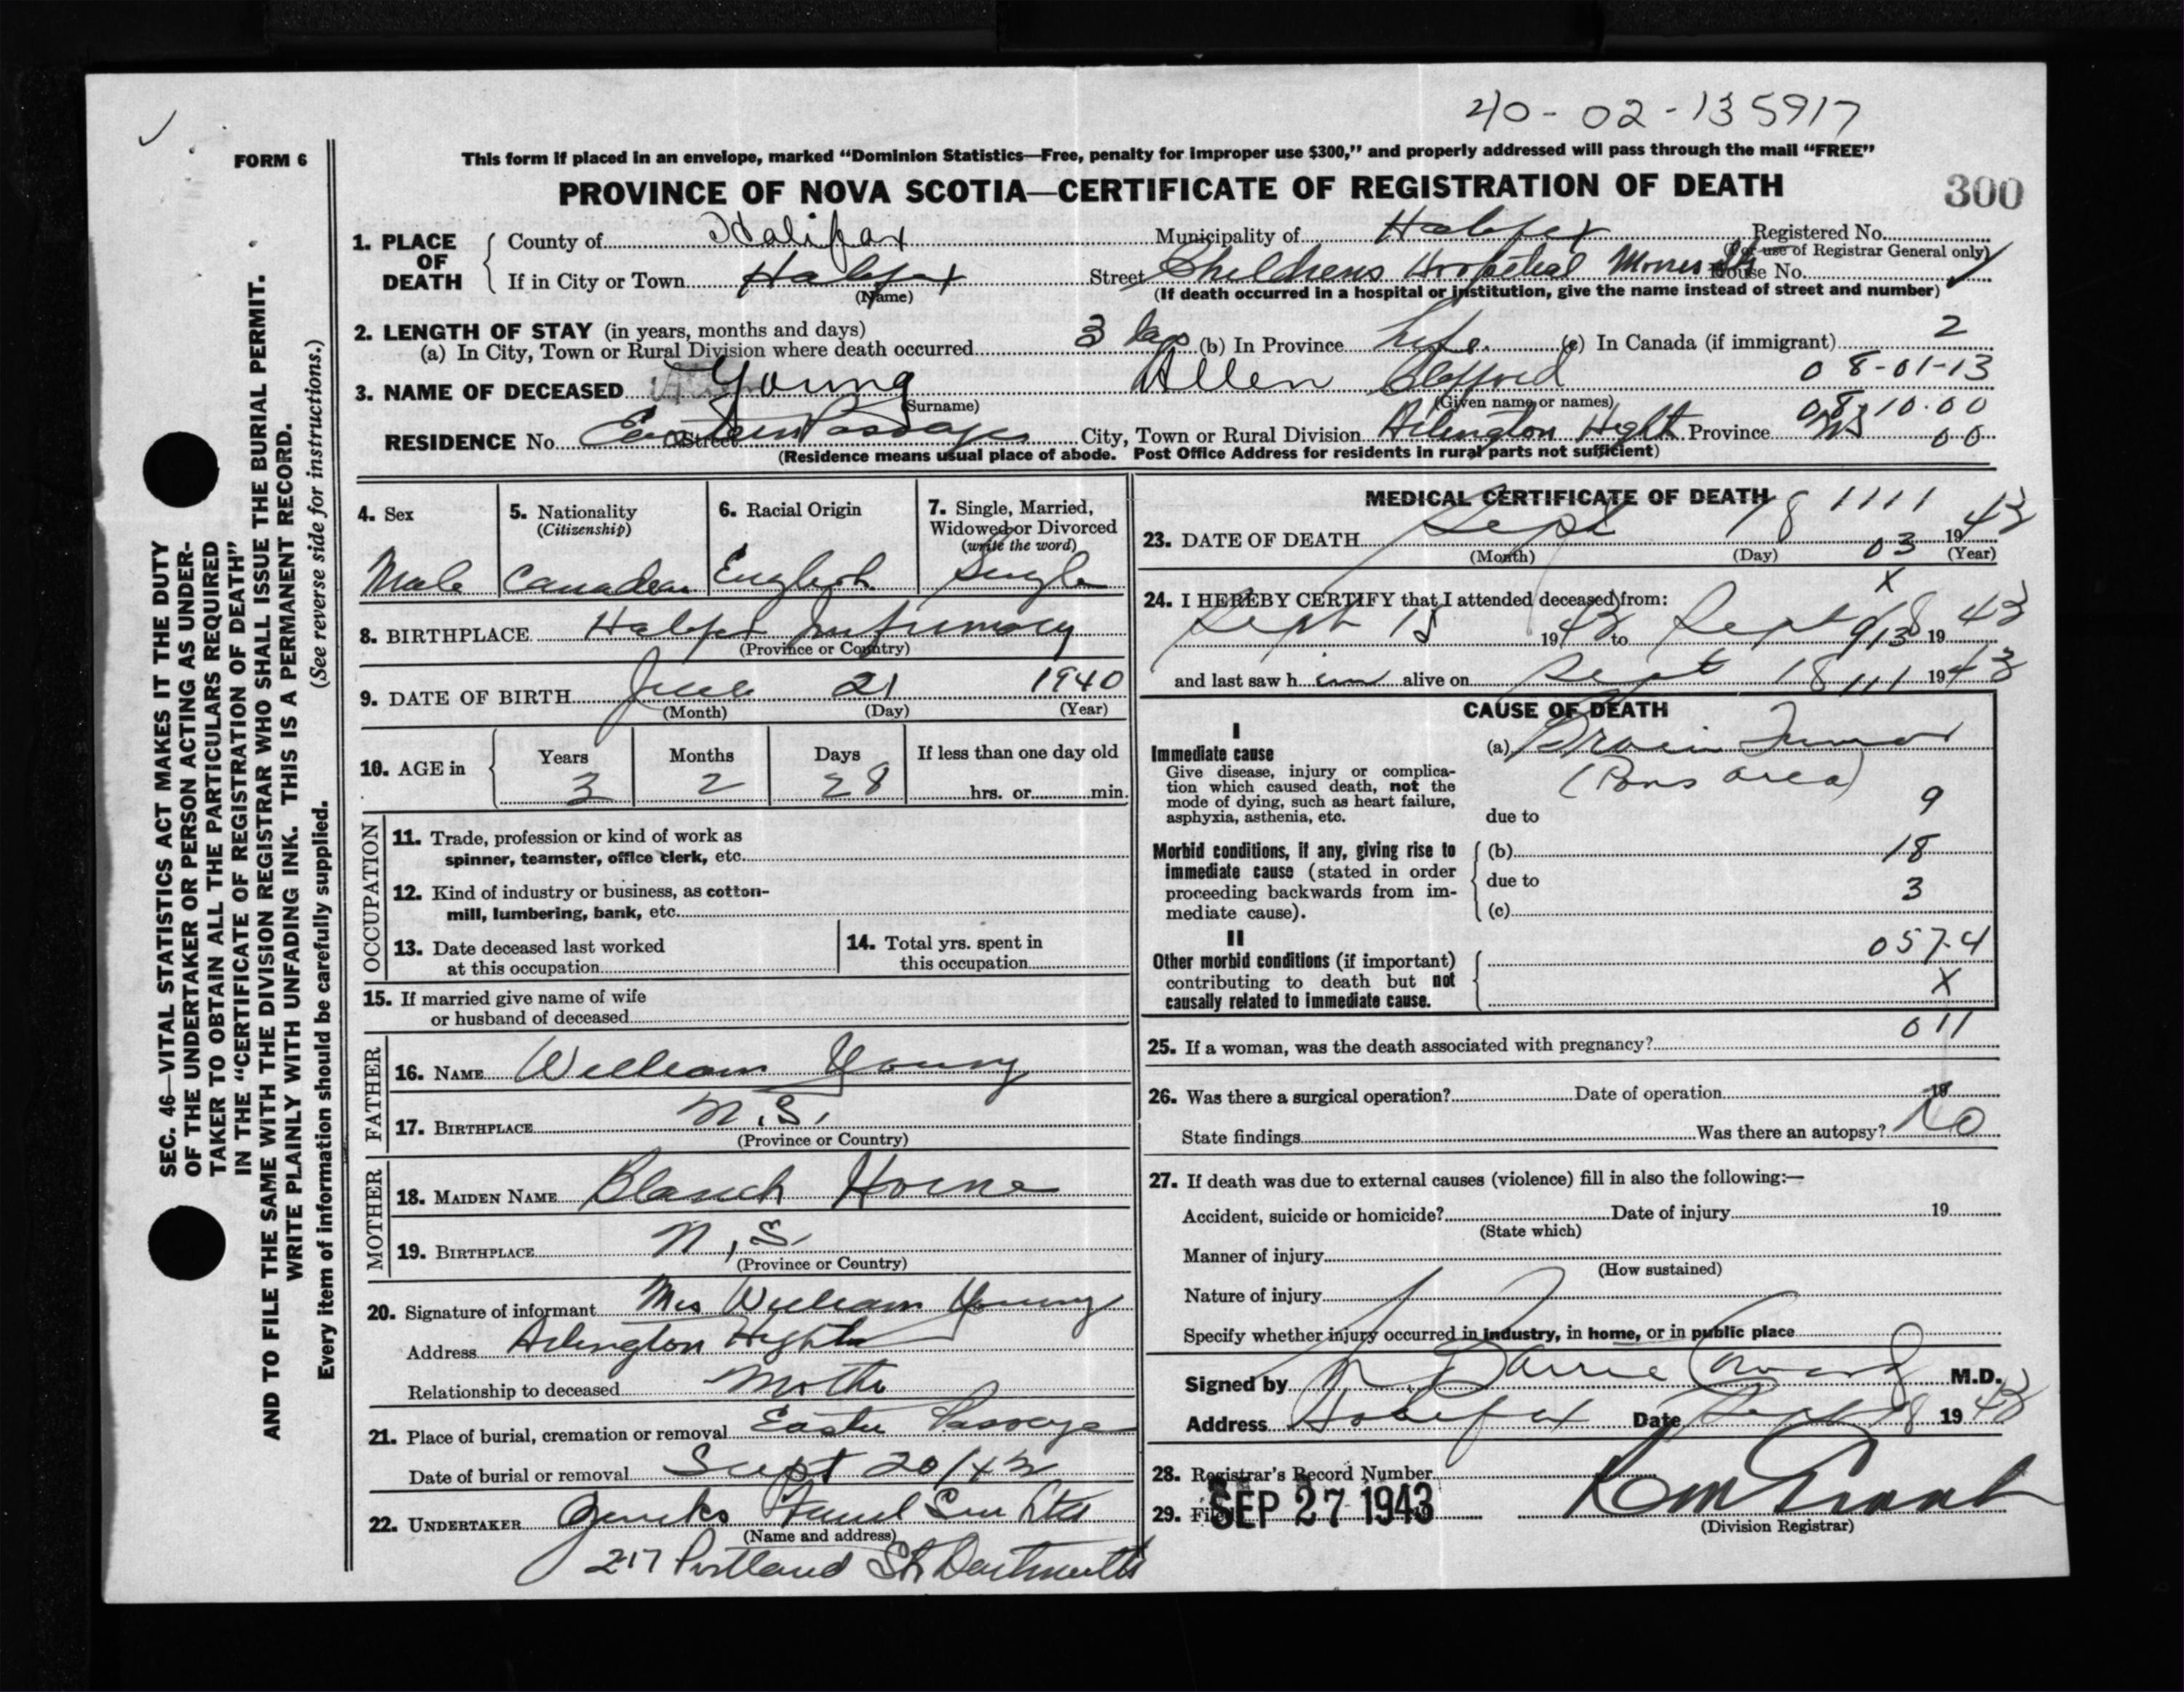 40-02-135917
FORM 6
This form if placed in an envelope, marked "Dominion Statistics—Free, penalty for improper use $300," and properly addressed will pass through the mail "FREE"
PROVINCE OF NOVA SCOTIA—CERTIFICATE OF REGISTRATION OF DEATH
300
1. PLACE OF DEATH
County of Halifax Municipality of Halifax Registered No.
(For use of Registrar General only)
If in City or Town Halifax Street Childrens Hospital Morris St House No.
(Name) (If death occurred in a hospital or institution, give the name instead of street and number)
2. LENGTH OF STAY (in years, months and days)
(a) In City, Town or Rural Division where death occurred 3 days (b) In Province Life. (c) In Canada (if immigrant) 2
08-01-13
3. NAME OF DECEASED Young Allen Clifford
(Surname) (Given name or names)
08-10.00
RESIDENCE No. Eastern Passage Street City, Town or Rural Division Arlington Hight Province NS 00
(Residence means usual place of abode. Post Office Address for residents in rural parts not sufficient)
4. Sex Male
5. Nationality (Citizenship) Canadian
6. Racial Origin English
7. Single, Married, Widowed or Divorced (write the word) Single
8. BIRTHPLACE Halifax Infirmary
(Province or Country)
9. DATE OF BIRTH June 21 1940
(Month) (Day) (Year)
10. AGE in
Years 3
Months 2
Days 28
If less than one day old
hrs. or min.
OCCUPATION
11. Trade, profession or kind of work as
spinner, teamster, office clerk, etc.
12. Kind of industry or business, as cotton-
mill, lumbering, bank, etc.
13. Date deceased last worked
at this occupation
14. Total yrs. spent in
this occupation
15. If married give name of wife
or husband of deceased
FATHER
16. NAME William Young
17. BIRTHPLACE N.S.
(Province or Country)
MOTHER
18. MAIDEN NAME Blanch Horne
19. BIRTHPLACE N.S.
(Province or Country)
20. Signature of informant Mrs William Young
Address Arlington Hights
Relationship to deceased Mother
21. Place of burial, cremation or removal Easter Passage
Date of burial or removal Sept 20/43
22. UNDERTAKER
(Name and address)
217 Portland St. Dartmouth
MEDICAL CERTIFICATE OF DEATH
1111
23. DATE OF DEATH Sept 18 03 1943
(Month) (Day) (Year)
X
24. I HEREBY CERTIFY that I attended deceased from:
Sept 15 1943 to Sept 18 1943
913
and last saw him alive on Sept 18 1943
CAUSE OF DEATH
I
Immediate cause
Give disease, injury or complica-
tion which caused death, not the
mode of dying, such as heart failure,
asphyxia, asthenia, etc.
(a) Brain Tumor
(Pons area)
9
due to
Morbid conditions, if any, giving rise to
immediate cause (stated in order
proceeding backwards from im-
mediate cause).
(b) 18
due to
3
(c)
II
Other morbid conditions (if important)
contributing to death but not
causally related to immediate cause.
057-4
X
011
25. If a woman, was the death associated with pregnancy?
26. Was there a surgical operation? Date of operation 19
State findings Was there an autopsy? No
27. If death was due to external causes (violence) fill in also the following:—
Accident, suicide or homicide? Date of injury 19
(State which)
Manner of injury
(How sustained)
Nature of injury
Specify whether injury occurred in industry, in home, or in public place
Signed by Barrie Coward M.D.
Address Halifax Date Sept 18 1943
28. Registrar's Record Number
29. Filed SEP 27 1943
(Division Registrar)
SEC. 46—VITAL STATISTICS ACT MAKES IT THE DUTY
OF THE UNDERTAKER OR PERSON ACTING AS UNDER-
TAKER TO OBTAIN ALL THE PARTICULARS REQUIRED
IN THE "CERTIFICATE OF REGISTRATION OF DEATH"
AND TO FILE THE SAME WITH THE DIVISION REGISTRAR WHO SHALL ISSUE THE BURIAL PERMIT.
WRITE PLAINLY WITH UNFADING INK. THIS IS A PERMANENT RECORD.
Every item of information should be carefully supplied. (See reverse side for instructions.)